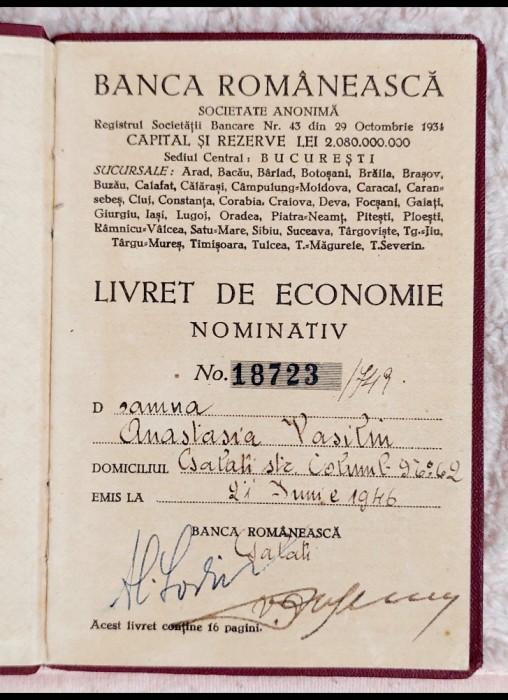 BANCA ROMÂNEASCĂ
SOCIETATE ANONIMĂ
Registrul Societății Bancare Nr. 43 din 29 Octombrie 1934
CAPITAL ȘI REZERVE LEI 2.080.000.000
Sediul Central: BUCUREȘTI
SUCURSALE: Arad, Bacău, Bârlad, Botoșani, Brăila, Brașov,
Buzău, Calafat, Călărași, Câmpulung-Moldova, Caracal, Caran-
sebeș, Cluj, Constanța, Corabia, Craiova, Deva, Focșani, Galați,
Giurgiu, Iași, Lugoj, Oradea, Piatra-Neamț, Pitești, Ploești,
Râmnicu-Vâlcea, Satu-Mare, Sibiu, Suceava, Târgoviște, Tg.-Jiu,
Târgu-Mureș, Timișoara, Tulcea, T.-Măgurele, T.Severin.
LIVRET DE ECONOMIE
NOMINATIV
No. 18723 /749.
D oamna
Anastasia Vasiliu
DOMICILIUL Galati str. 62
EMIS LA 21 Iunie 1946
BANCA ROMÂNEASCĂ
Galati
Acest livret conține 16 pagini.